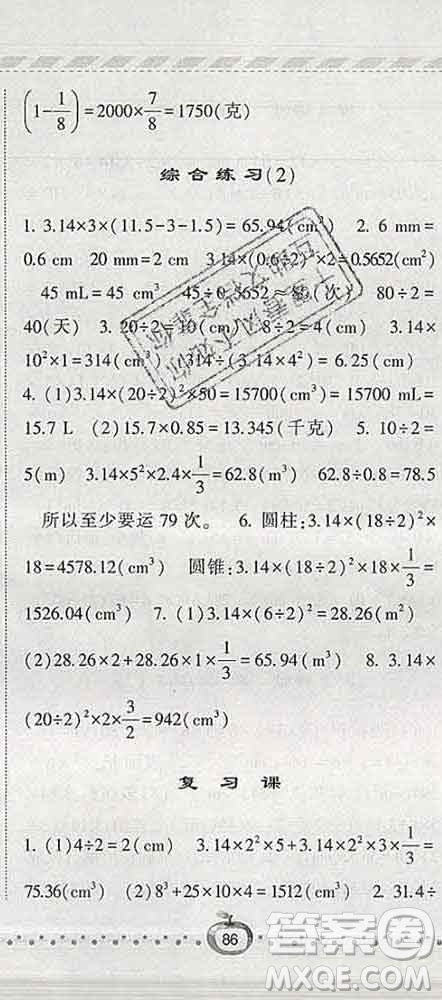 (1-1/8)=2000×7/8=1750(克)
综合练习(2)
1. 3.14×3×(11.5-3-1.5)=65.94(cm³) 2. 6 mm=
0.6 cm 20 mm=2 cm 3.14×(0.6÷2)²×2=0.5652(cm²)
45 mL=45 cm³ 45÷0.5652≈ (次) 80÷2=
40(天) 3. 20÷2=10(cm) 8÷2=4(cm) 3.14×
10²×1=314(cm³) 314÷(3.14×4²)=6.25(cm)
4. (1)3.14×(20÷2)²×50=15700(cm³)=15700 mL=
15.7 L (2)15.7×0.85=13.345(千克) 5. 10÷2=
5(m) 3.14×5²×2.4×1/3=62.8(m³) 62.8÷0.8=78.5
所以至少要运79次。 6. 圆柱:3.14×(18÷2)²×
18=4578.12(cm³) 圆锥:3.14×(18÷2)²×18×1/3=
1526.04(cm³) 7. (1)3.14×(6÷2)²=28.26(m²)
(2)28.26×2+28.26×1×1/3=65.94(m³) 8. 3.14×
(20÷2)²×2×3/2=942(cm³)
复习课
1. (1)4÷2=2(cm) 3.14×2²×5+3.14×2²×3×1/3=
75.36(cm³) (2)8³+25×10×4=1512(cm³) 2. 31.4÷
86
答案圈
MXQE.COM